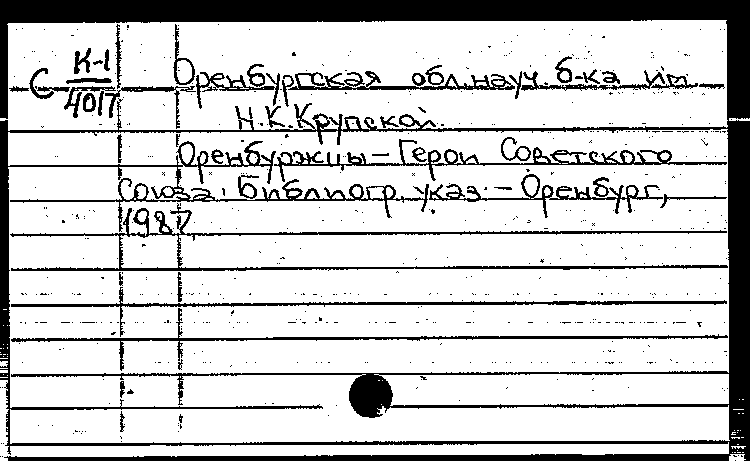 С К-1 Оренбургская обл. науч. б-ка им.
4017
Н.К.Крупской.
Оренбуржцы – Герои Советского
Союза: Библиогр. указ. – Оренбург,
1987.